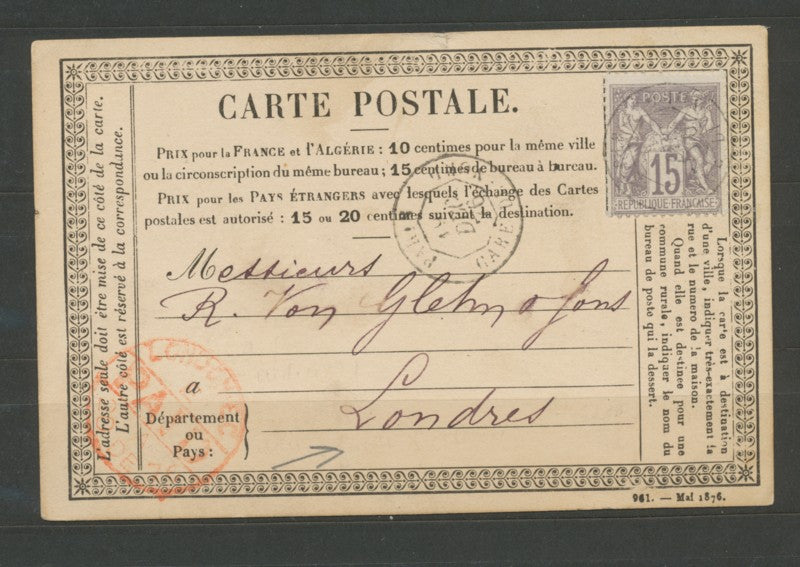 CARTE POSTALE.
PRIX pour la FRANCE et l'ALGÉRIE : 10 centimes pour la même ville
ou la circonscription du même bureau ; 15 centimes de bureau à bureau.
PRIX pour les PAYS ÉTRANGERS avec lesquels l'échange des Cartes
postales est autorisé : 15 ou 20 centimes suivant la destination.
POSTE
15
REPUBLIQUE FRANÇAISE
PARIS
GARE
Messieurs
R. Von Glehn & Sons
a
Londres
Département
ou
Pays :
L'adresse seule doit être mise de ce côté de la carte.
L'autre côté est réservé à la correspondance.
Lorsque la carte est à destination
d'une ville, indiquer très-exactement la
rue et le numero de la maison.
Quand elle est destinée pour une
commune rurale, indiquer le nom du
bureau de poste qui la dessert.
961. — Mai 1876.